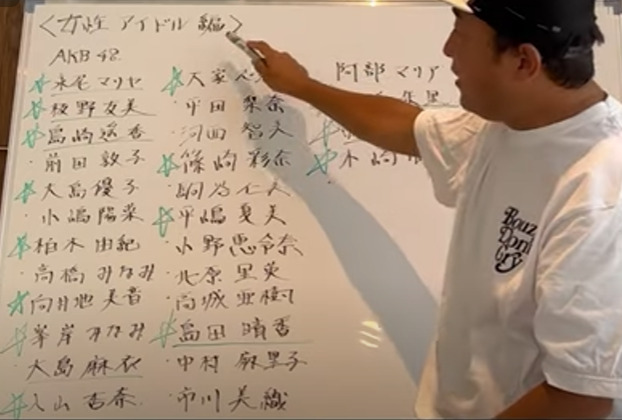 〈女性アイドル編〉
AKB48
永尾マリヤ
板野友美
島崎遥香
前田敦子
大島優子
小嶋陽菜
柏木由紀
高橋みなみ
向井地美音
峯岸みなみ
大島麻衣
入山杏奈
大家
平田梨奈
河西智美
篠崎彩奈
平嶋夏美
小野恵令奈
北原里英
高城亜樹
島田晴香
中村麻里子
市川美織
阿部マリア
Don't
Cry